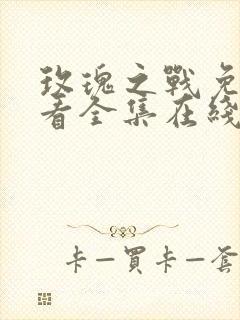 玫瑰之戰免
看全集在綫
卡—買卡—套